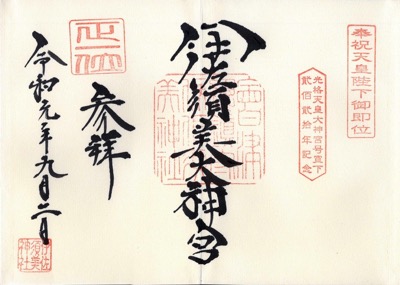 奉祝天皇陛下御即位
光格天皇大神宮号宣下
貳佰貳拾年記念
伊佐須美大神宮
参拝
正一位
令和元年九月二日
伊佐須美神社